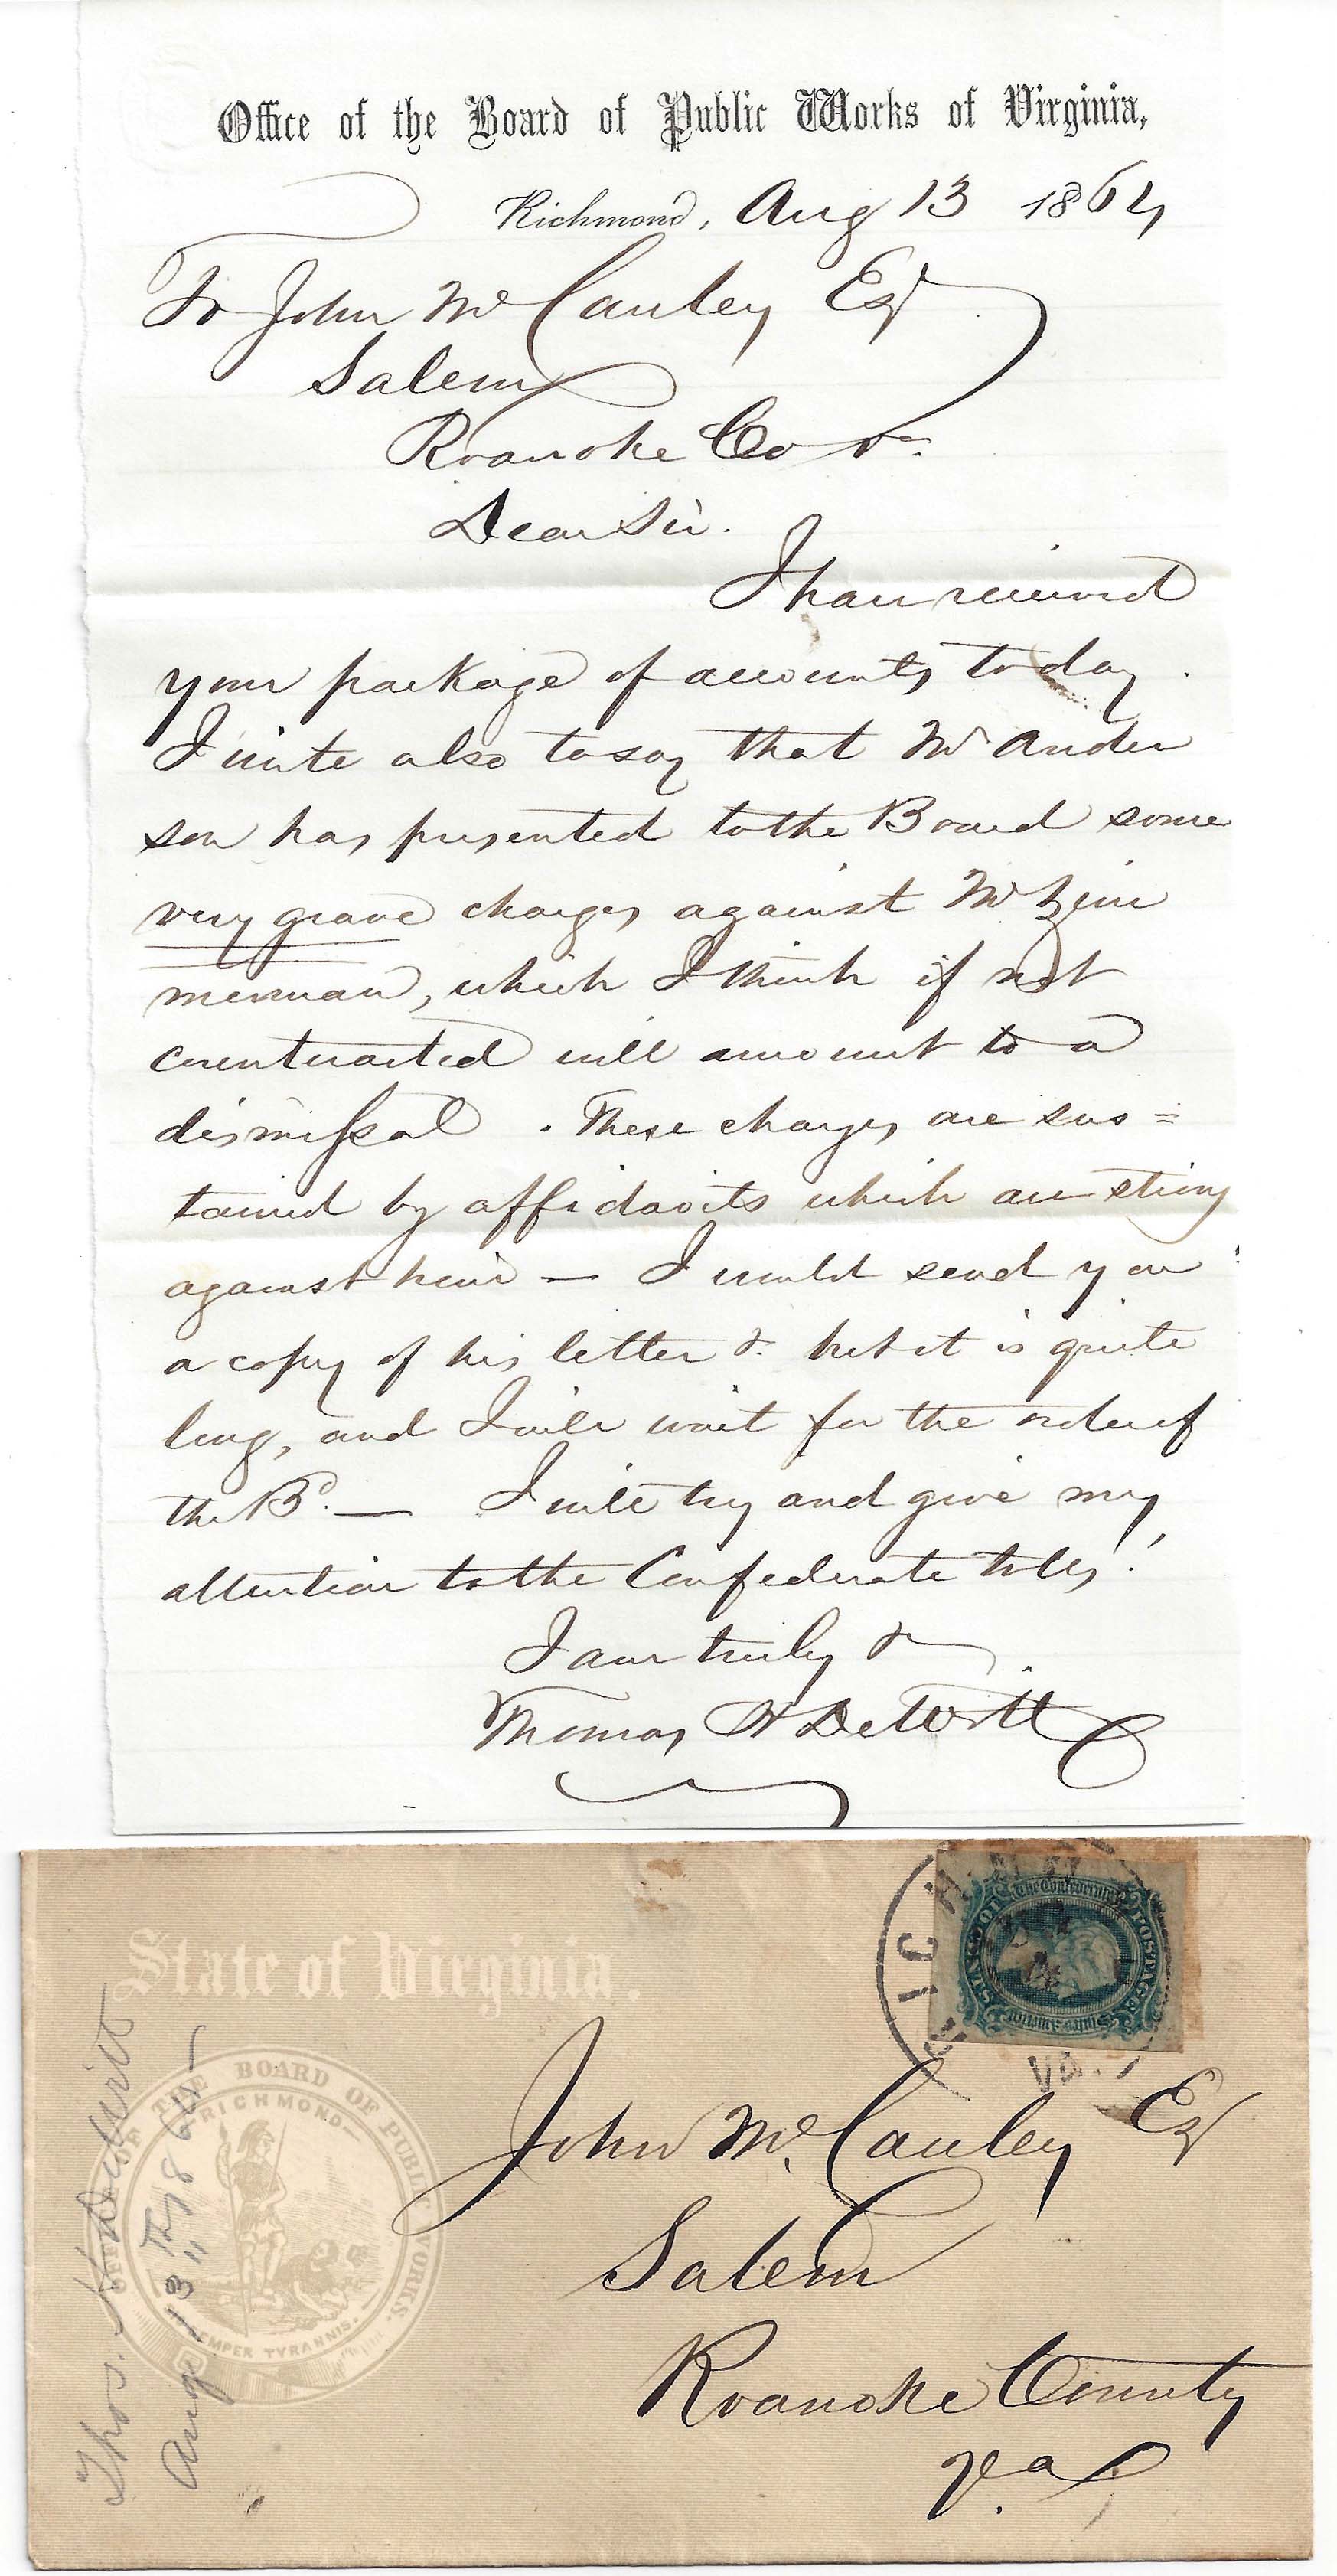 Office of the Board of Public Works of Virginia,
Richmond, Aug 13 1864
To John McCauley Esq
Salem
Roanoke Co Va
Dear Sir.
I have received
your package of accounts today.
I write also to say that Mr Ander
son has presented to the Board some
very grave charges against Mr Zim
merman, which I think if not
counteracted will amount to a
dismissal. These charges are sus=
tained by affidavits which are strong
against him — I would send you
a copy of his letter &. but it is quite
long, and I will wait for the order of
the Bd. — I will try and give my
attention to the Confederate tolls!
I am truly &
Thomas H DeWitt
State of Virginia.
OFFICE OF THE BOARD OF PUBLIC WORKS.
RICHMOND
SEMPER TYRANNIS.
Thos. H DeWitt
Aug. 13th 1864
RICHMOND
VA.
The Confederate
States of America
POSTAGE
John McCauley Esq
Salem
Roanoke County
Va